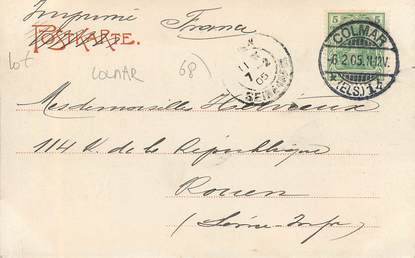 Imprimé France
POSTKARTE.
lot COLMAR 68)
5 5
COLMAR
6 2.05.11-12V.
(ELS) 1
11
7 2
05
Mesdemoiselles
114 R. de la République
Rouen
(Seine-Infre)